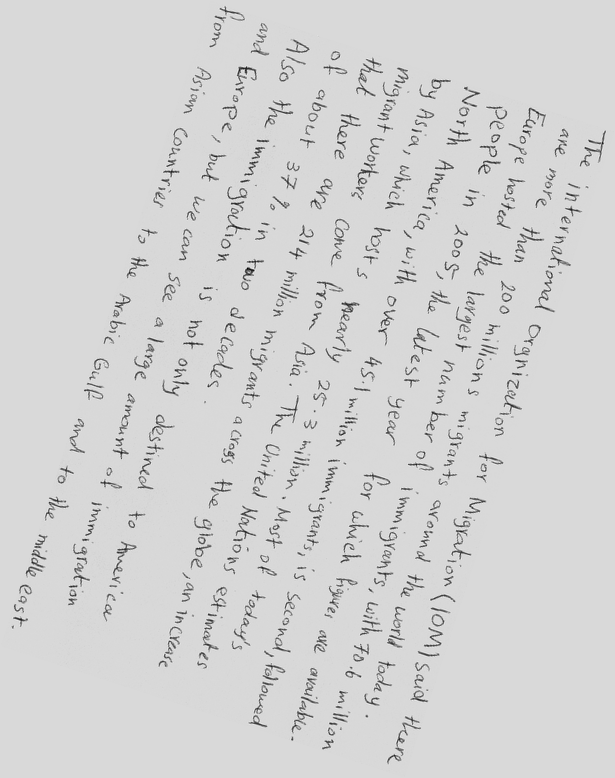 The international Orgnization for Migration (IOM) said there
are more than 200 millions migrants around the world today.
Europe hosted the largest number of immigrants, with 70.6 million
People in 2005, the latest year for which figures are available.
North America, with over 45.1 million immigrants, is second, followed
by Asia, which hosts nearly 25.3 million. Most of today's
migrant workers come from Asia. The United Nations estimates
that there are 214 million migrants across the globe, an increase
of about 37% in two decades.
Also the immigration is not only destined to America
and Europe, but we can see a large amount of immigration
from Asian Countries to the Arabic Gulf and to the middle east.